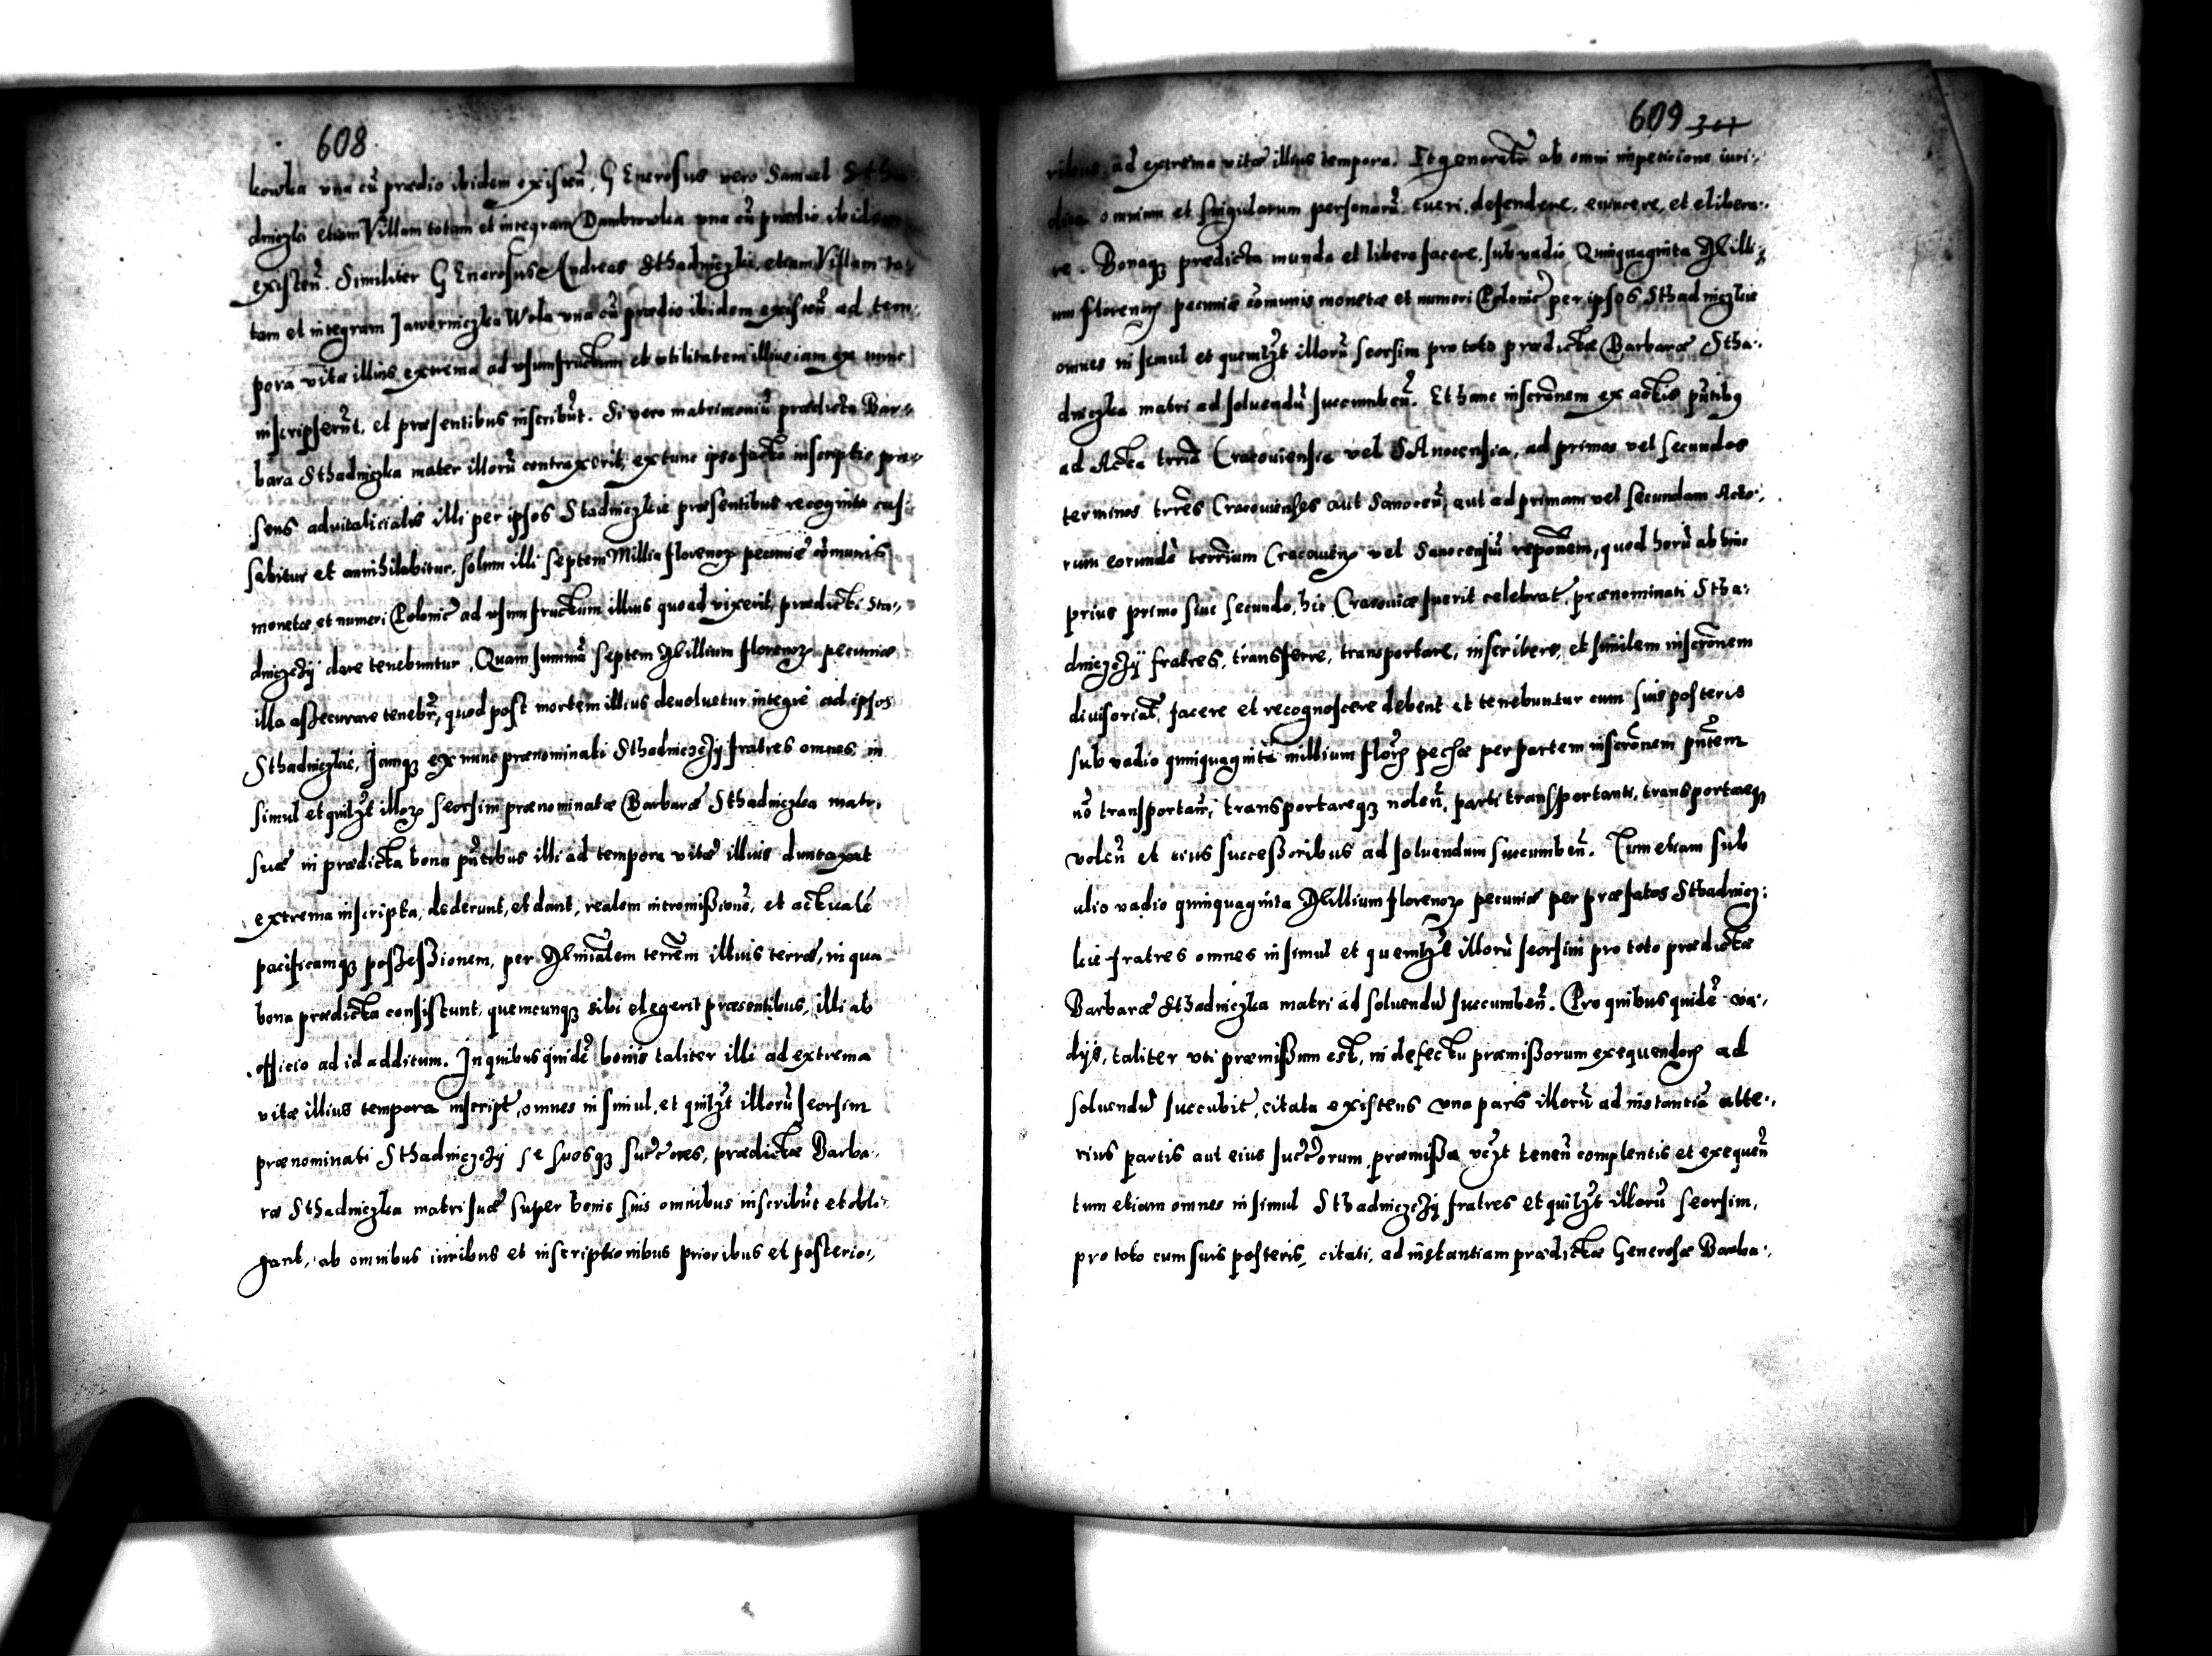 608
kowka vna cũ prædio ibidem existeñ, GEnerosus vero Samuel Stha
dniczki etiam Villam totam et integram Dambrowka vna cũ prædio ibidem
existeñ. Similiter GEnerosus Andreas Sthadniczki, etiam Villam to:
tam et integram Jaworniczka Wola vna cũ prædio ibidem existeñ ad tem:
pora vitæ illius extrema ad vsumfructum et vtilitatem illius iam ex nunc
inscripserũt, et præsentibus inscribũt. Si vero matrimoniũ prædicta Bar:
bara Sthadniczka mater illorũ contraxerit, extunc ipso facto inscriptio præ:
sens aduitalicialis illi per ipsos Stadniczkie præsentibus recognita cas:
sabitur et annihilabitur, solum illi septem Millia florenoꝝ pecuniæ cõmunis
monetæ et numeri Polonic̃ ad vsumfructum illius quoad vixerit, prædicti Sta:
dniczczÿ dare tenebuntur. Quam summã septem Millium florenoꝝ pecuniæ
illa assecurare tenebr̃, quod post mortem illius deuoluetur integrè ad ipsos
Sthadniczkie, Jamqꝫ ex nunc prænominati Sthadniczczÿ fratres omnes in
simul et quilzt̃ illoꝝ seorsim prænominatæ Barbaræ Sthadniczka matri
suæ in prædicta bona pñtibus illi ad tempora vitæ illius duntaxat
extrema inscripta, dederunt, et dant, realem intromissionẽ, et actualẽ
pacificamqꝫ possessionem, per Minialem̃ terrẽm illius terræ, in qua
bona prædicta consistunt, quemcunqꝫ sibi elegerit præsentibus, illi ab
officio ad id additum. In quibus quidẽ bonis taliter illi ad extrema
vitæ illius tempora inscript̃, omnes in simul, et quilzt̃ illorũ seorsim
prænominati Sthadniczczÿ se suosqꝫ succ̃ores, prædictæ Barba:
ræ Sthadniczka matri suæ super bonis suis omnibus inscribũt et obli:
gant, ab omnibus iuribus et inscriptionibus prioribus et posterio:
609 301
ribus, ad extrema vitæ illius tempora. Et generatĩ ab omni impeticione iuri:
dica omnium et singularum personarũ tueri, defendere, euincere, et elibera:
re. Bonaqꝫ prædicta munda et libera facere, sub vadio Quinquaginta Milli:
um florenoꝝ pecuniæ cõmunis monetæ et numeri Polonic̃ per ipsos Sthadniczkie
omnes in simul et quemlzt̃ illorũ seorsim pro toto prædictæ Barbaræ Stha:
dniczka matri ad soluendũ succumbeñ. Et hanc inscrõnem ex actis pñtibꝰ
ad Acta trria Cracouiensia vel SAnocensia, ad primos vel secundos
terminos trres Cracouienses aut Sanoceñ, aut ad primam vel secundam Acto:
rum eorundẽ terrium Cracouieñ vel Sanocensiũ reponem, quod horũ ab hinc
prius primo siue secundo, hic Cracouiæ fuerit celebrat̃, prænominati Stha:
dniczczÿ fratres, transferre, transportare, inscribere, et similem inscrõnem
diuisoriat̃, facere et recognoscere debent et tenebuntur cum suis posteris
sub vadio quinquaginta millium floꝝ pecuñ per partem inscrõnem pñtem
nõ transportañ, transportareqꝫ noleñ, parti transportanti, transportareqꝫ
voleñ et eius successoribus ad soluendum succumbeñ. Tum etiam sub
alio vadio quinquaginta Millium florenoꝝ pecuniæ per præfatos Sthadnicz:
kie fratres omnes in simul et quemlzt̃ illorũ seorsim pro toto prædictæ
Barbaræ Sthadniczka matri ad soluendũ succumbeñ. Pro quibus quidẽ va:
dijs, taliter vti præmissum est, in defectu præmissorum exequendoꝝ ad
soluendũ succubit̃, citata existens vna pars illorũ ad instantiã alte:
rius partis aut eius succ̃orum præmissa vczt teneñ complentis et exequeñ
tum etiam omnes in simul Sthadniczczÿ fratres et quilzt̃ illorũ seorsim,
pro toto cum suis posteris, citati, ad instantiam prædictæ Generosæ Barba: